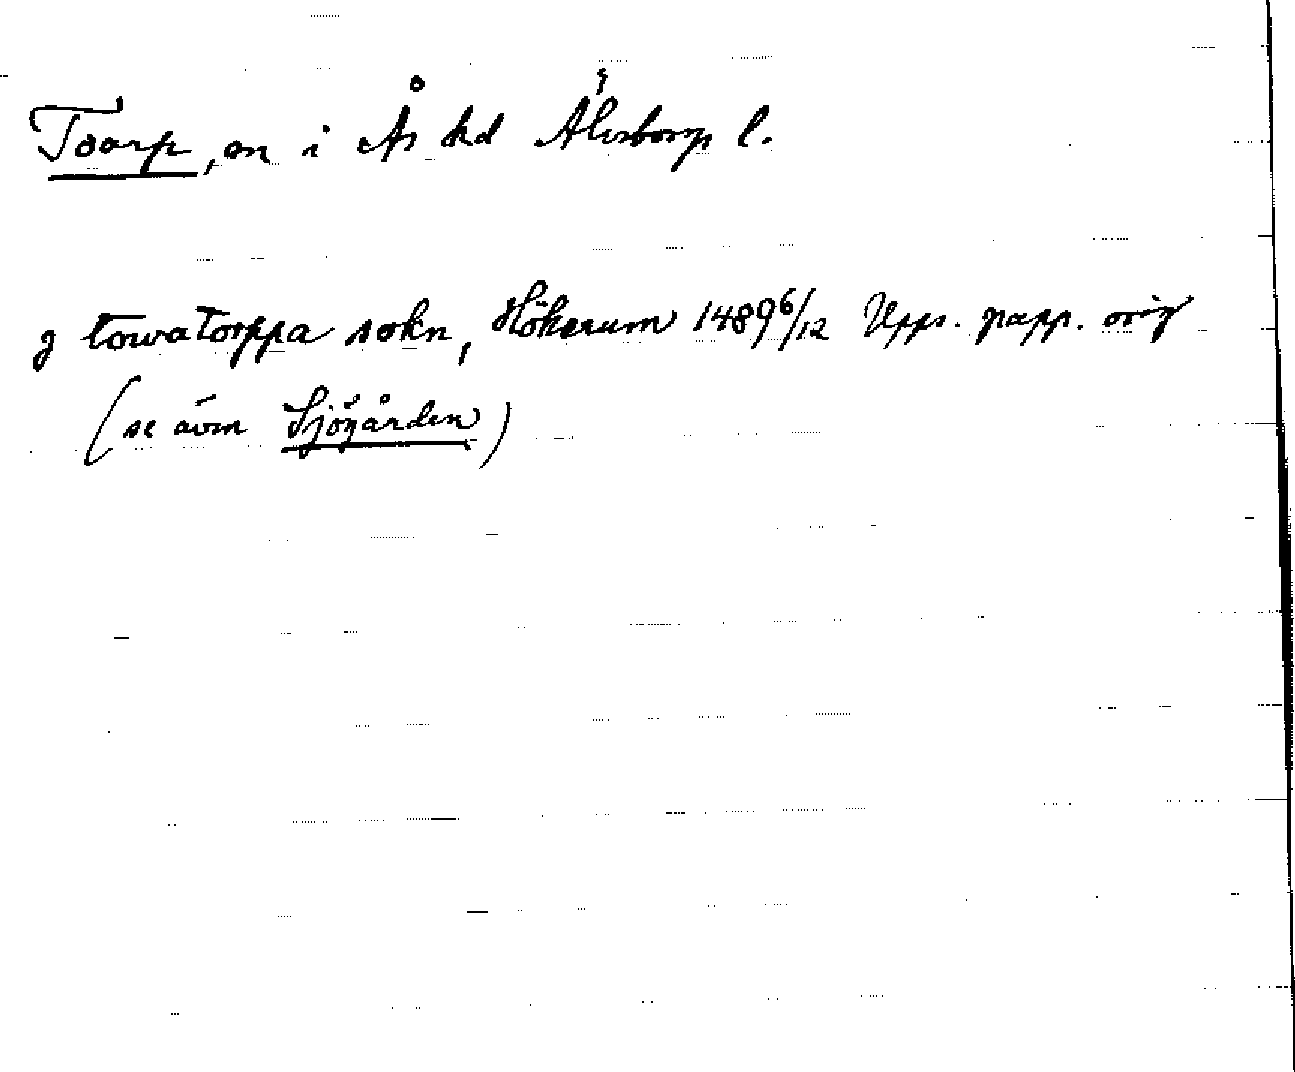 Toarp, sn i Ås hd Älvsborgs l.
J towatorppa sokn, Hökerum 1489 6/12 Upps. papp. orig
(se även Sjögården)